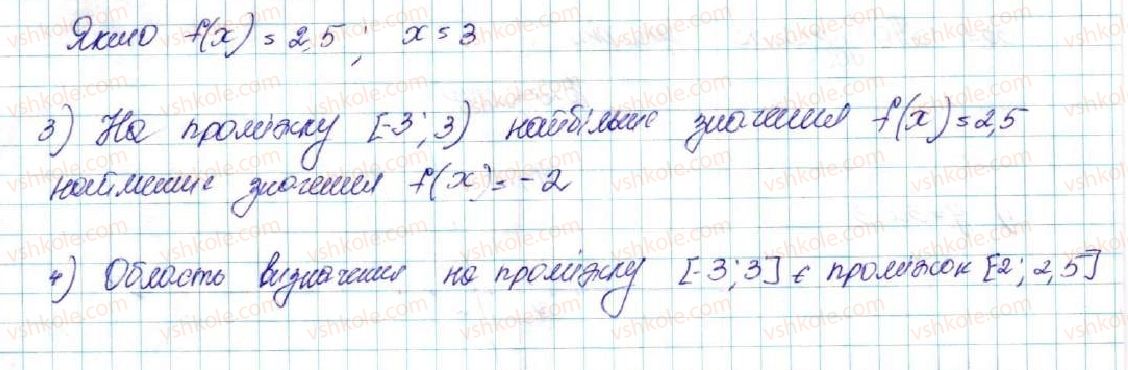 Якщо f(x) = 2,5 ; x = 3
3) На проміжку [-3; 3) найбільше значення f(x) = 2,5
найменше значення f(x) = -2
4) Область визначення на проміжку [-3; 3] є проміжок [-2; 2,5]